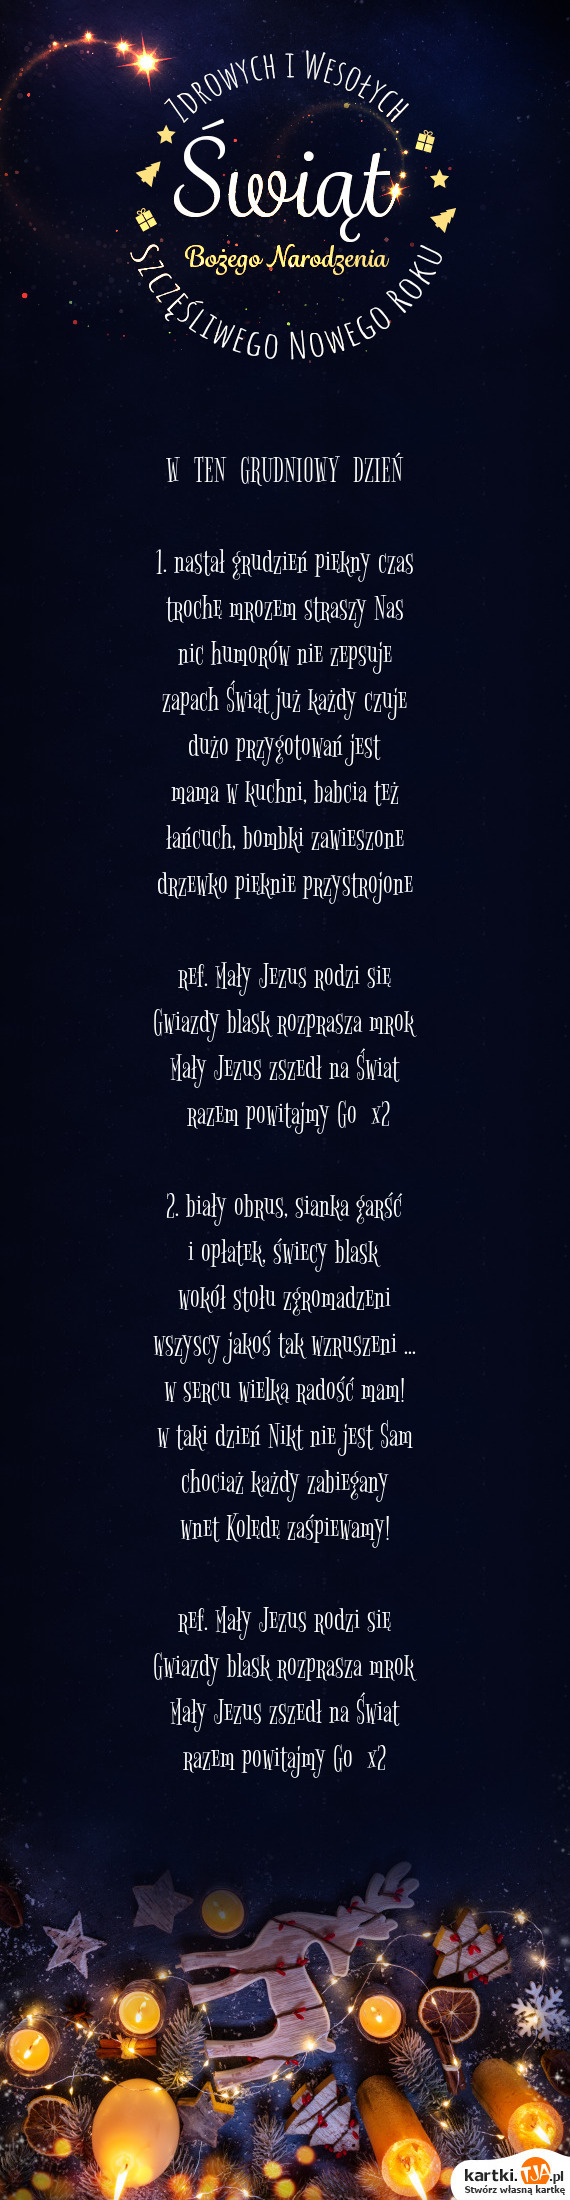 Zdrowych i Wesołych
Świąt
Bożego Narodzenia
Szczęśliwego Nowego Roku
W TEN GRUDNIOWY DZIEŃ
1. nastał grudzień piękny czas
trochę mrozem straszy Nas
nic humorów nie zepsuje
zapach Świąt już każdy czuje
dużo przygotowań jest
mama w kuchni, babcia też
łańcuch, bombki zawieszone
drzewko pięknie przystrojone
ref. Mały Jezus rodzi się
Gwiazdy blask rozprasza mrok
Mały Jezus zszedł na Świat
razem powitajmy Go x2
2. biały obrus, sianka garść
i opłatek, świecy blask
wokół stołu zgromadzeni
wszyscy jakoś tak wzruszeni ...
w sercu wielką radość mam!
w taki dzień Nikt nie jest Sam
chociaż każdy zabiegany
wnet Kolędę zaśpiewamy!
ref. Mały Jezus rodzi się
Gwiazdy blask rozprasza mrok
Mały Jezus zszedł na Świat
razem powitajmy Go x2
kartki.TJA.pl
Stwórz własną kartkę